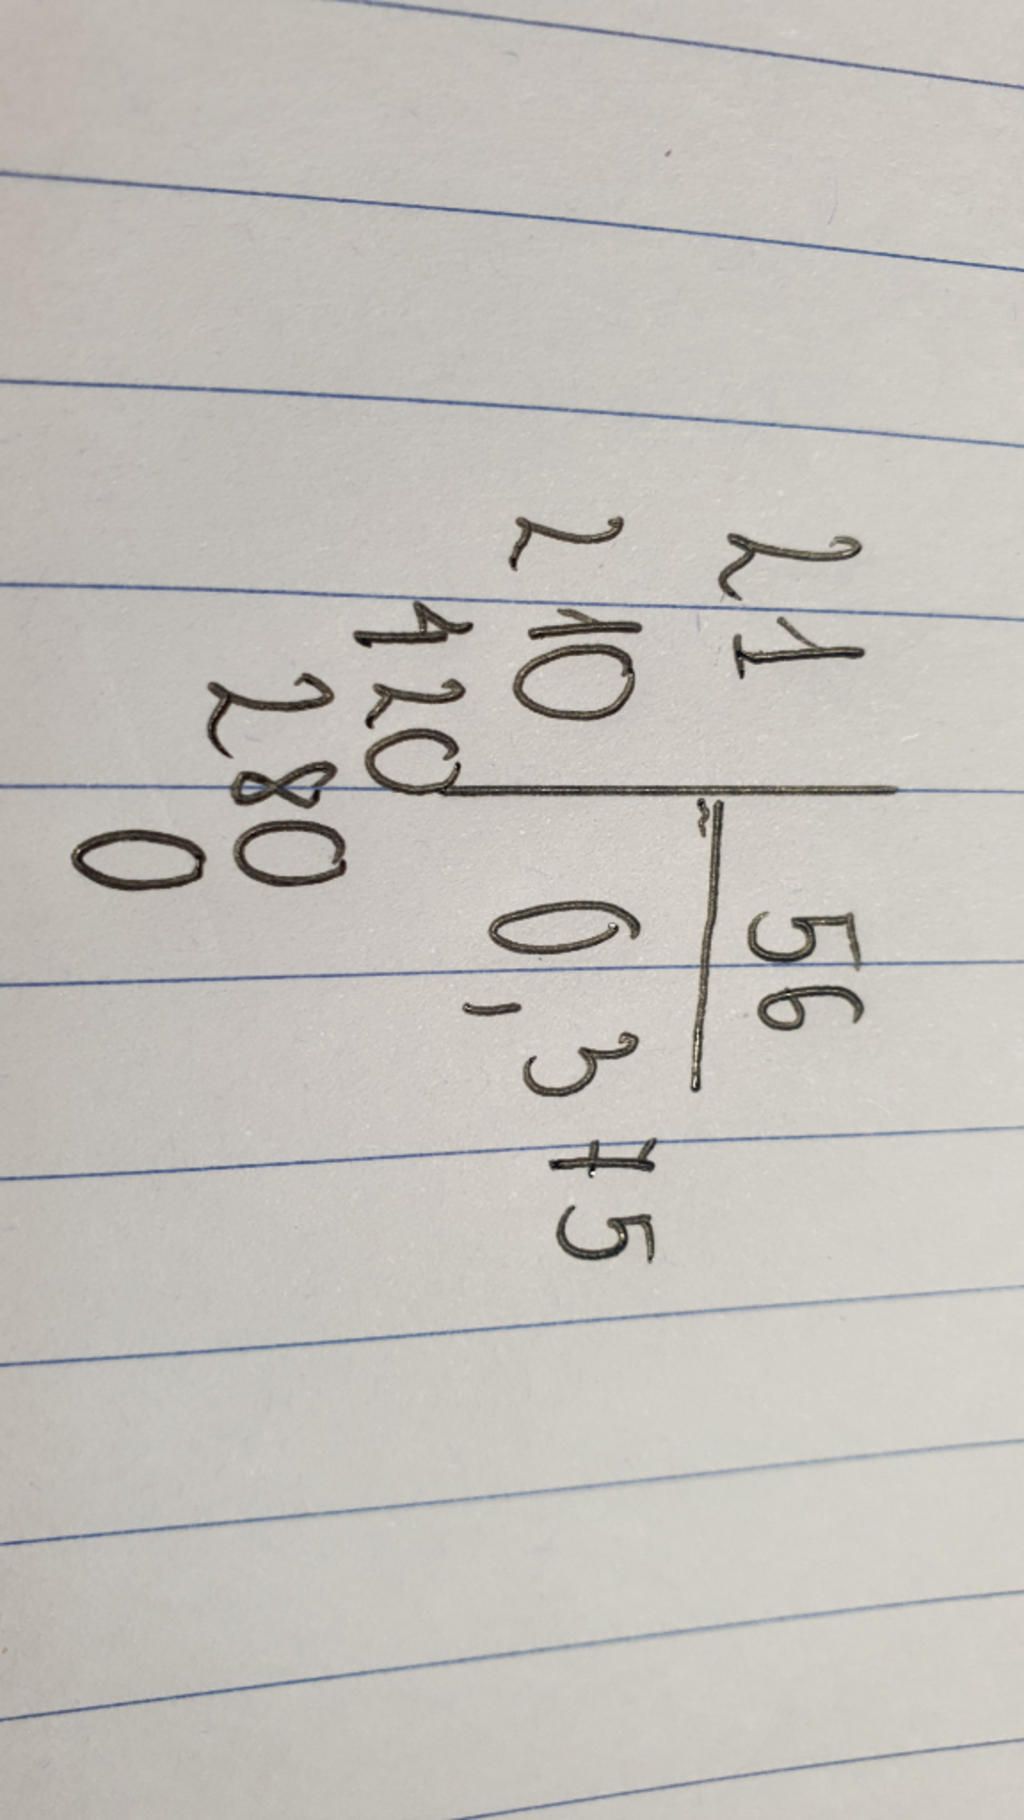 21 56
210 0,375
420
280
0